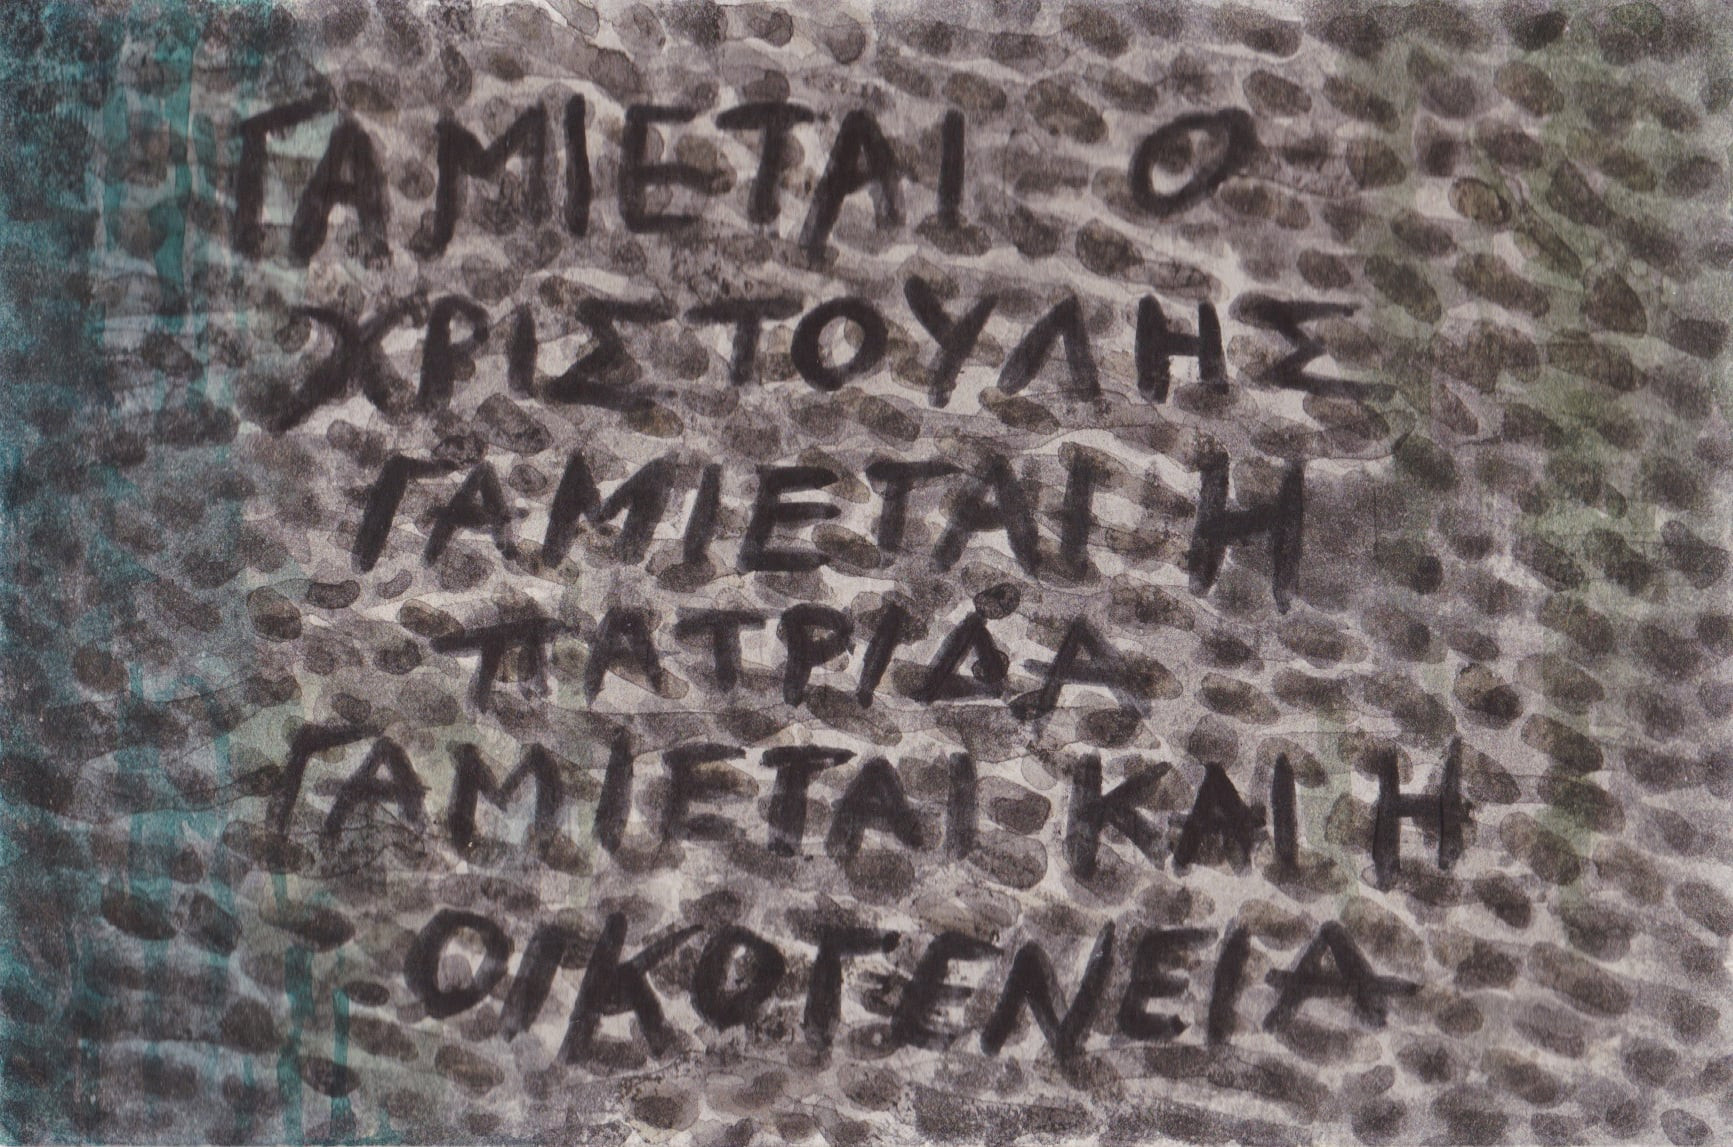 ΓΑΜΙΕΤΑΙ Ο
ΧΡΙΣΤΟΥΛΗΣ
ΓΑΜΙΕΤΑΙ Η
ΠΑΤΡΙΔΑ
ΓΑΜΙΕΤΑΙ ΚΑΙ Η
ΟΙΚΟΓΕΝΕΙΑ